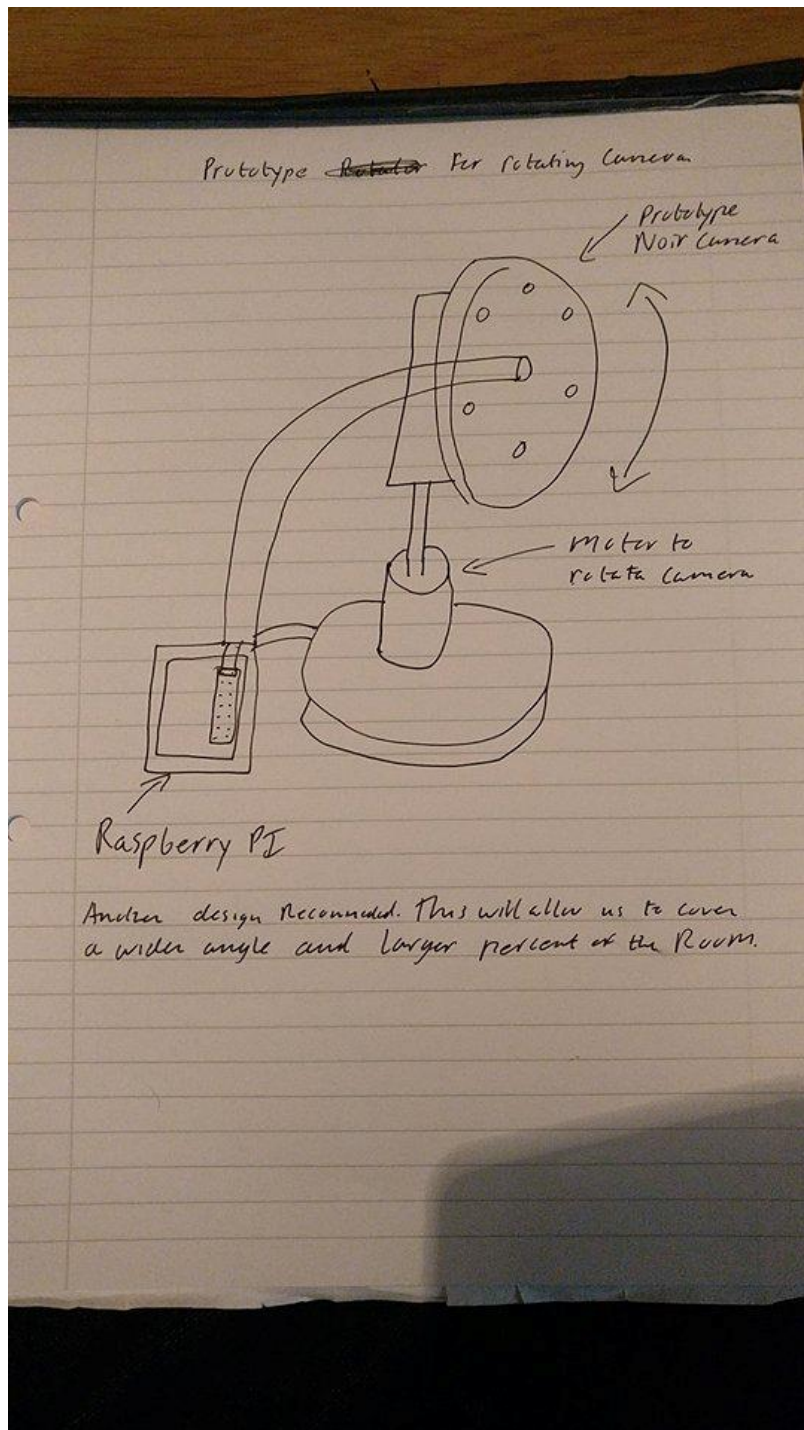 Prototype For rotating Camera
Prototype
Noir Camera
Motor to
rotate camera
Raspberry PI
Another design Recommended. This will allow us to cover
a wider angle and larger percent of the Room.